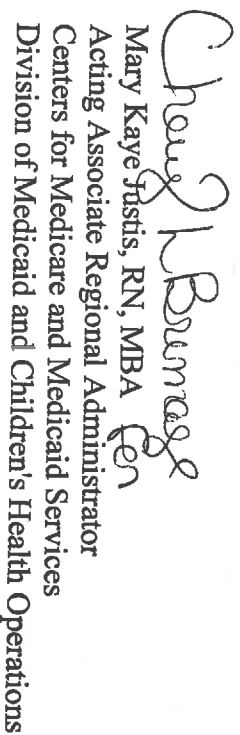 Mary Kaye Justis, RN, MBA for
Acting Associate Regional Administrator
Centers for Medicare and Medicaid Services
Division of Medicaid and Children's Health Operations